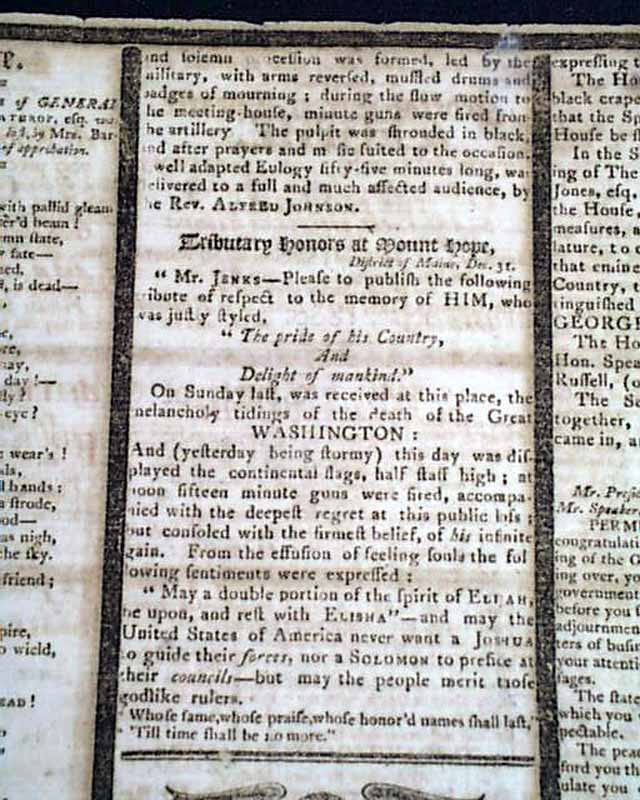 AY.
s of GENERAL
esq.
lost, by Mrs. Bar-
of approbation.
with pallid gleam
beam !
state,
fate—
is dead—
day !—
eye ?
wear's !
hands :
strode,
as nigh,
the sky.
friend ;
pire,
wield,
EAD !
and solemn procession was formed, led by the
military, with arms reversed, muffled drums and
badges of mourning ; during the slow motion to
he meeting-house, minute guns were fired from
he artillery The pulpit was shrouded in black,
nd after prayers and music suited to the occasion,
well adapted Eulogy fifty-five minutes long, was
elivered to a full and much affected audience, by
he Rev. ALFRED JOHNSON.
Tributary Honors at Mount Hope,
District of Maine, Dec. 31.
" Mr. JENKS—Please to publish the following
ribute of respect to the memory of HIM, who
was justly styled,
" The pride of his Country,
And
Delight of mankind."
On Sunday last, was received at this place, the
melancholy tidings of the death of the Great
WASHINGTON :
And (yesterday being stormy) this day was dis-
played the continental flags, half staff high ; at
noon fifteen minute guns were fired, accompa-
nied with the deepest regret at this public loss ;
but consoled with the firmest belief, of his infinite
gain. From the effusion of feeling souls the fol
lowing sentiments were expressed :
" May a double portion of the spirit of ELIJAH,
be upon, and rest with ELISHA"—and may the
United States of America never want a JOSHUA
to guide their forces, nor a SOLOMON to preside at
their councils—but may the people merit those
godlike rulers.
" Whose fame, whose praise, whose honor'd names shall last,"
" 'Till time shall be no more."
expressing t
The Ho
black crape
that the Sp
House be
In the S
ing of The
Jones, esq.
the House
measures, a
lature, to c
that emine
Country, t
tinguished
GEORGE
The Ho
Hon. Spea
Russell, (c
The Se
together,
came in, a
Mr. Presid
Mr. Speaker
PERM
congratulati
ing of the G
ing over, yo
government
before you t
adjournmen
ters of busin
your attenti
sages.
The state
which you
pectable.
The peac
ford you th
ulate you